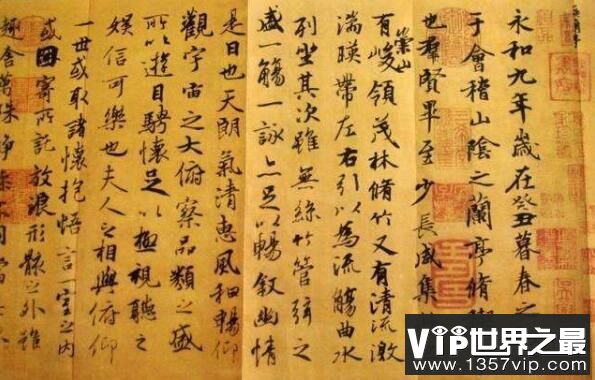 永和九年歲在癸丑暮春之
于會稽山陰之蘭亭脩禊
也羣賢畢至少長咸集
崇山
有峻領茂林脩竹又有清流激
湍暎帶左右引以為流觴曲水
列坐其次雖無絲竹管弦之
盛一觴一詠亦足以暢敘幽情
是日也天朗氣清惠風和暢仰
觀宇宙之大俯察品類之盛
所以遊目騁懷足以極視聽之
娛信可樂也夫人之相與俯仰
一世或取諸懷抱悟言一室之內
或因寄所託放浪形骸之外雖
趣舍萬殊靜躁不同當
VIP世界之最
www.1357vip.com